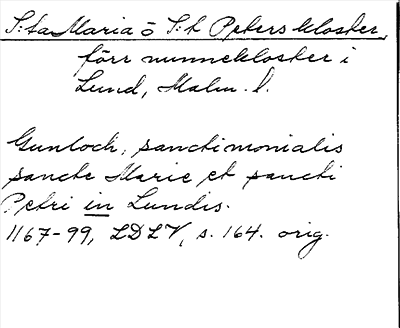 S:ta Maria o S:t Peters kloster,
förr nunnekloster i
Lund, Malm. l.
Gunloch, sanctimonialis
sancte Marie et sancti
Petri in Lundis.
1167-99, LDLV, s. 164. orig.